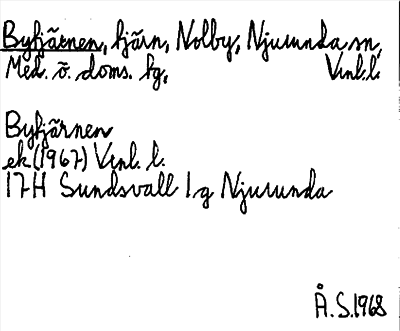 Bytjärnen, tjärn, Nolby, Njurunda sn,
Med. ö. doms. tg, Vnl. l.
Bytjärnen
ek (1967) Vnl. l.
17H Sundsvall 1g Njurunda
Å.S. 1968